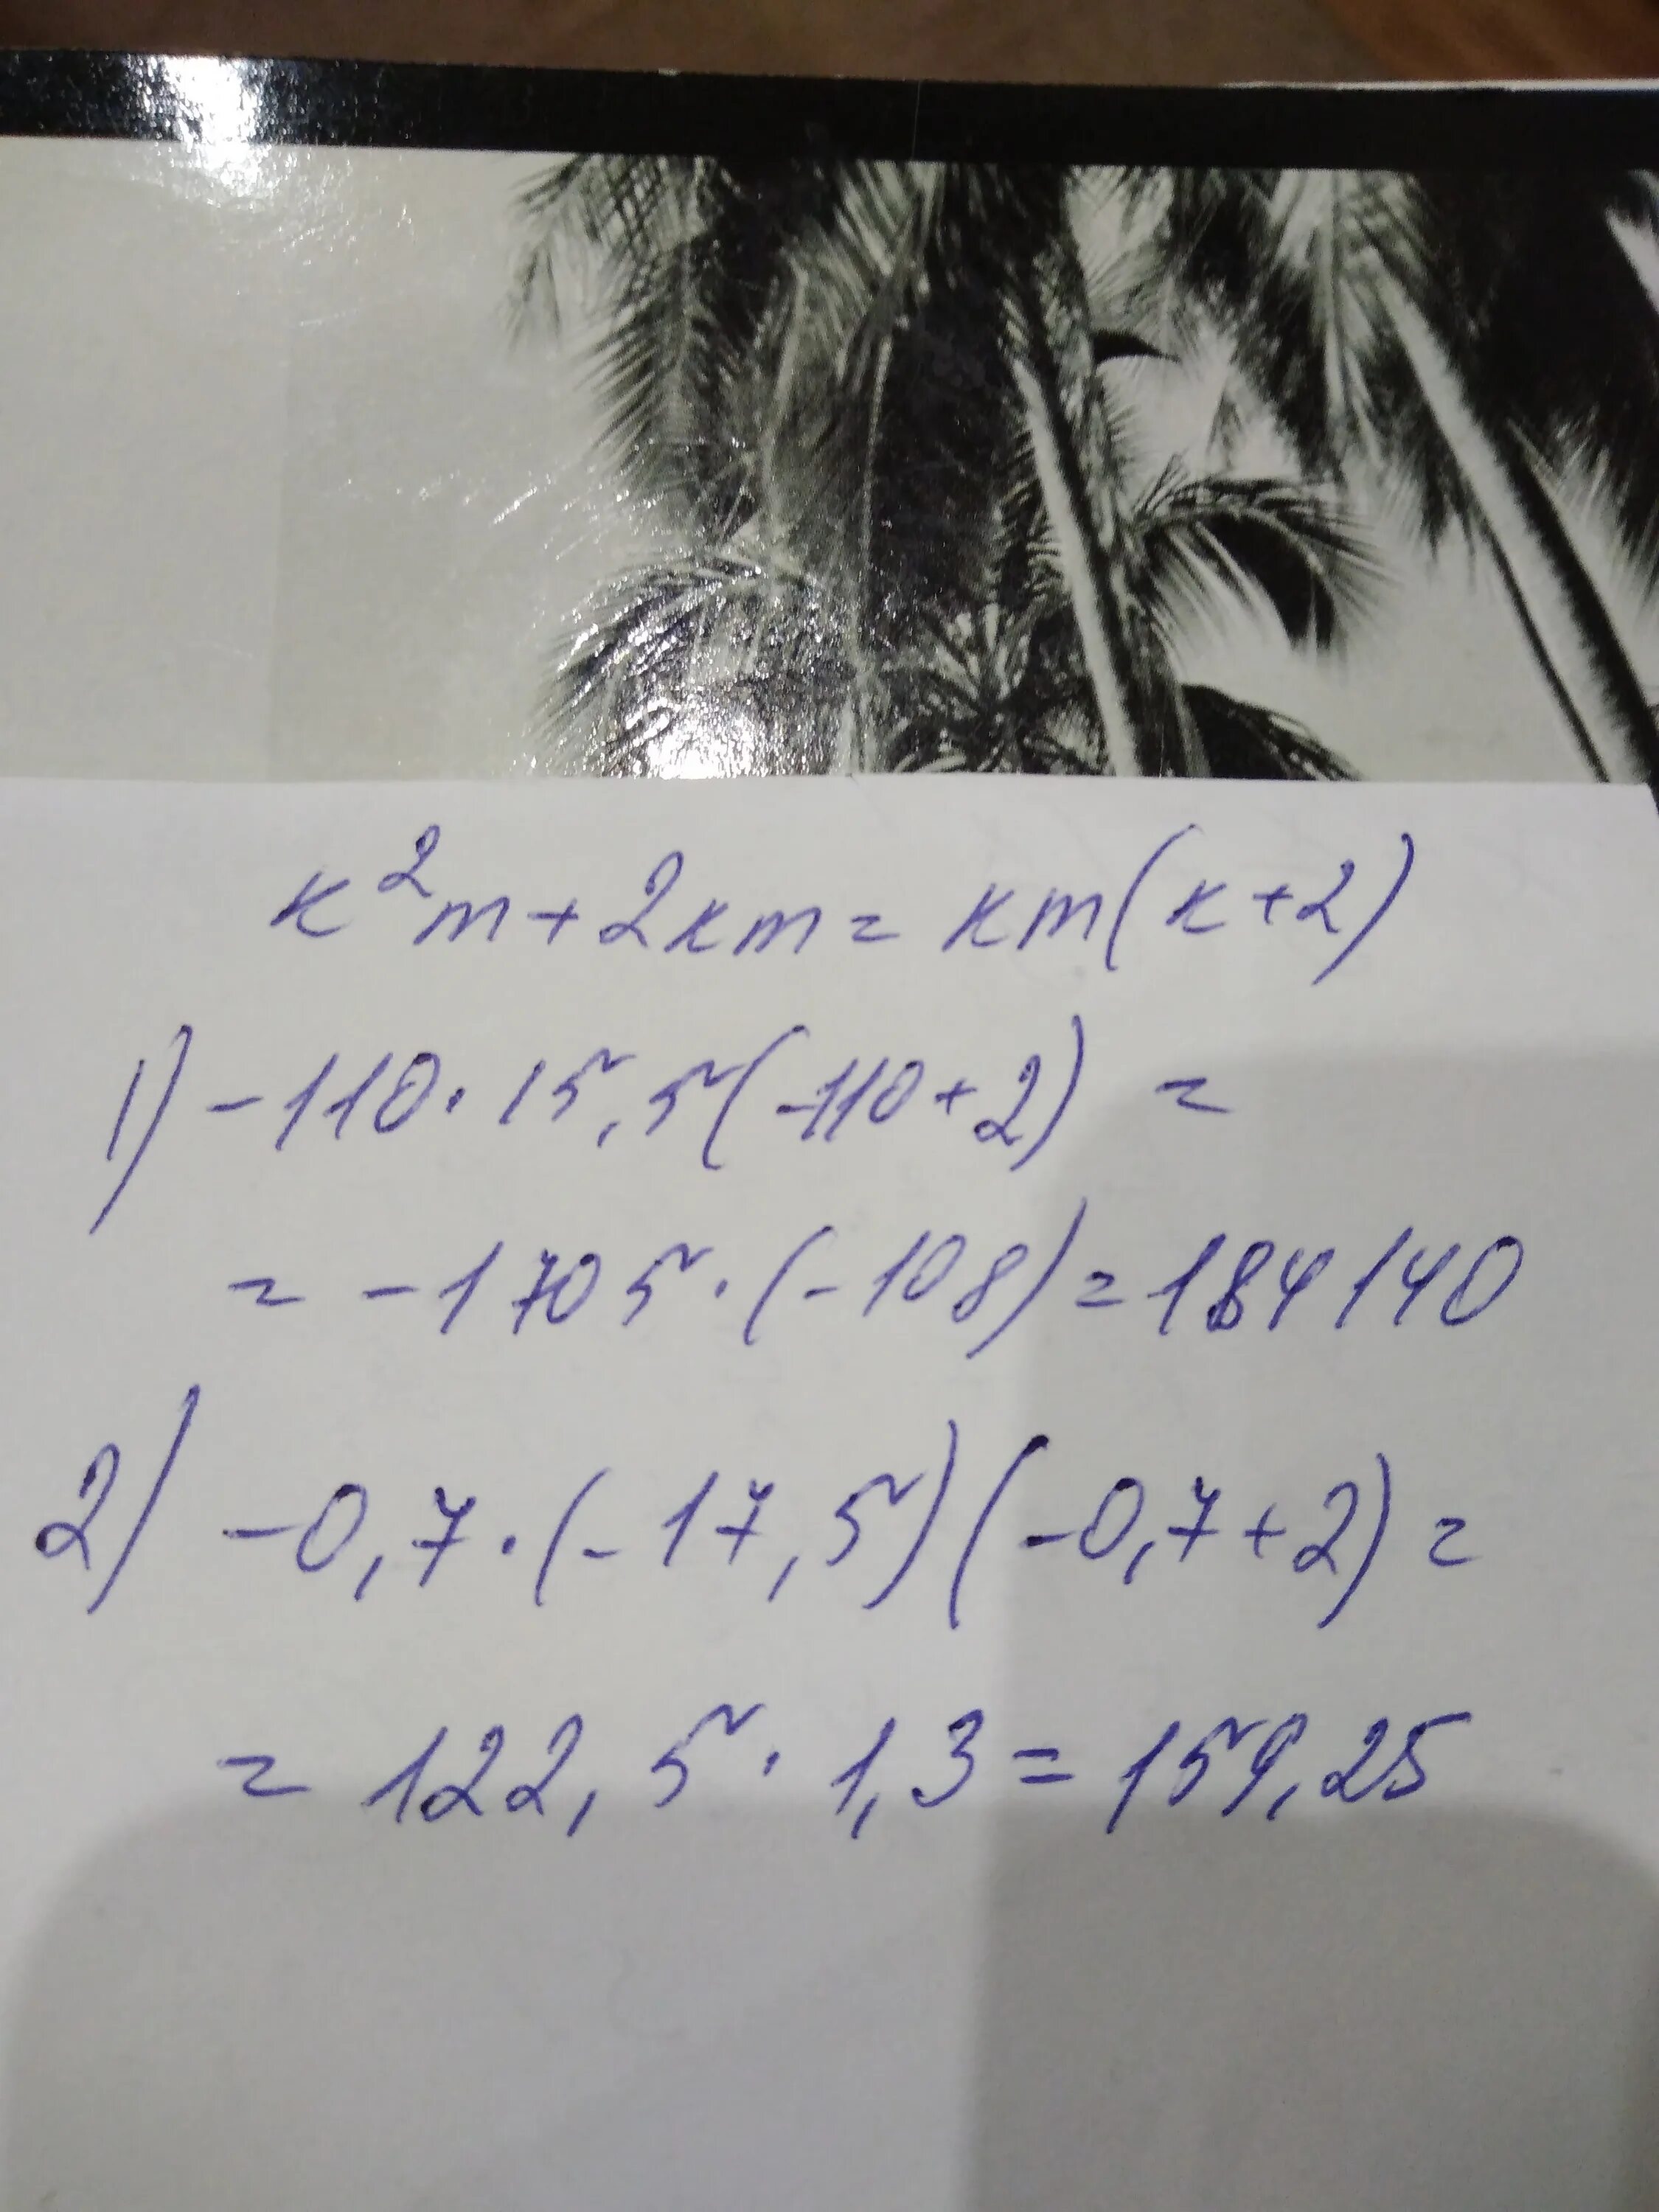 к²m+2кm=кm(к+2)
1) -110·15,5(-110+2) =
= -1705·(-108)=184140
2) -0,7·(-17,5)(-0,7+2)=
= 122,5·1,3=159,25